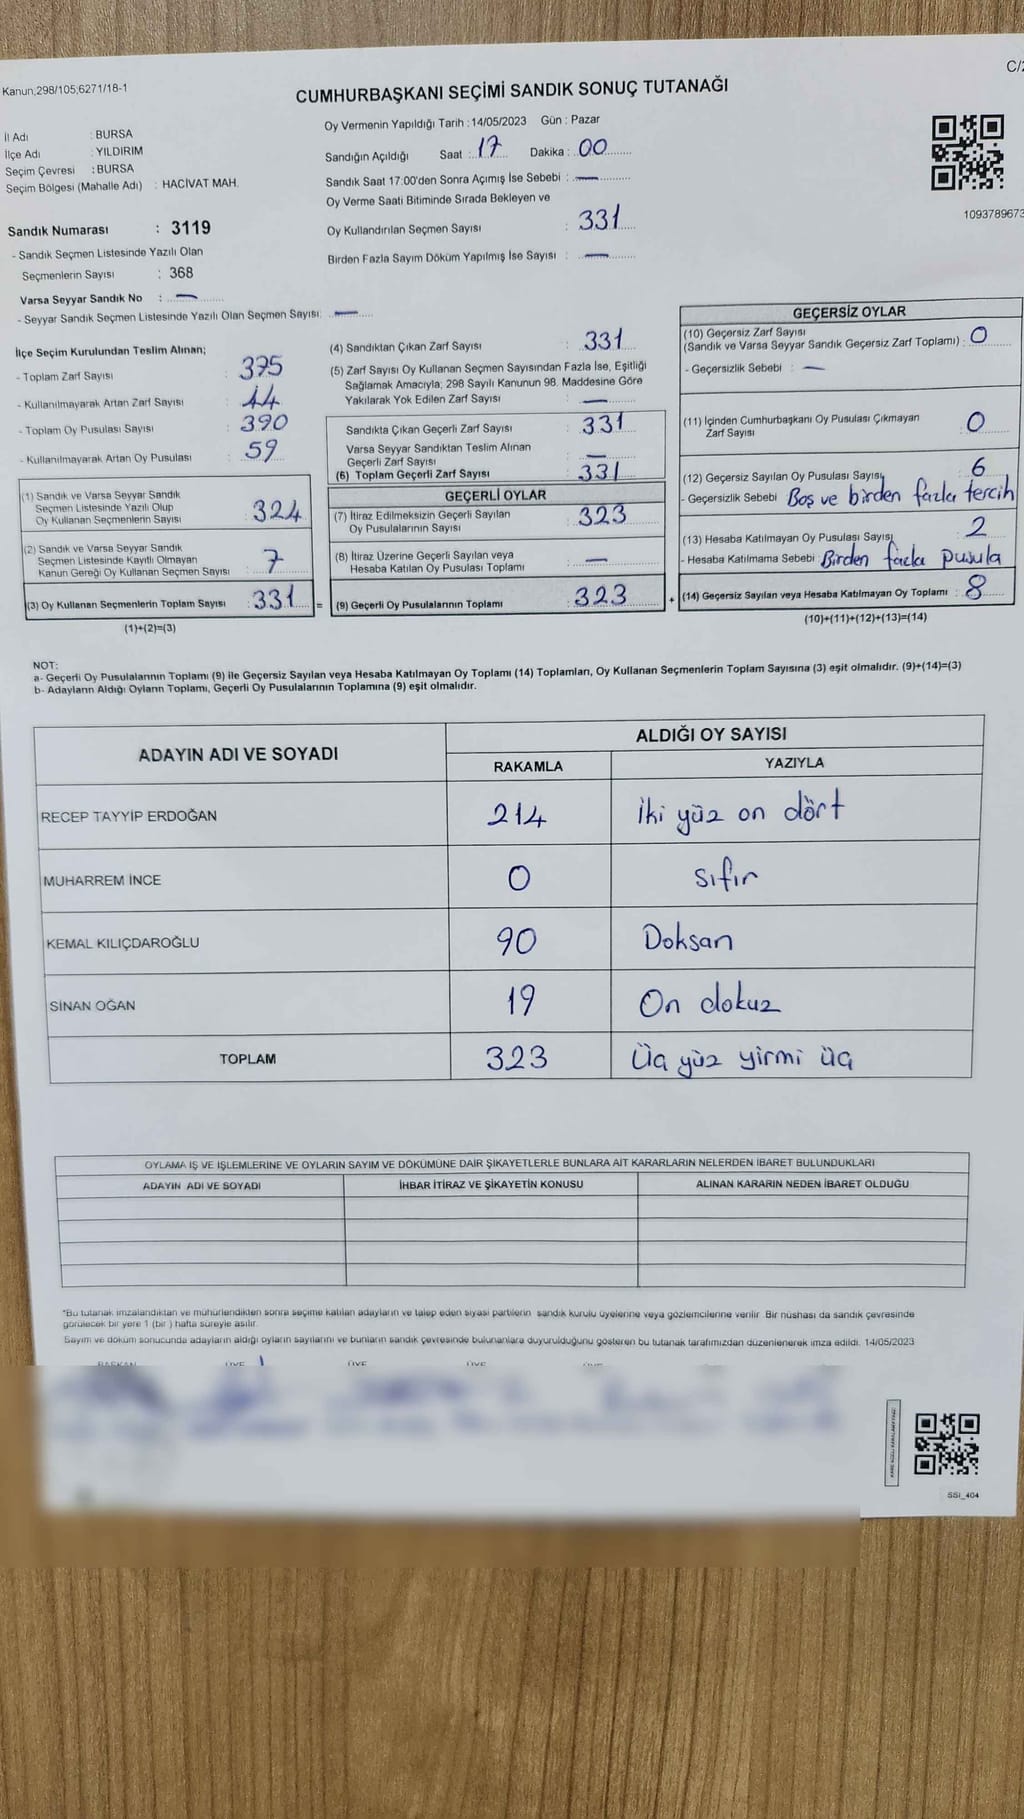 Kanun;298/105;6271/18-1
C/2
CUMHURBAŞKANI SEÇİMİ SANDIK SONUÇ TUTANAĞI
İl Adı : BURSA
İlçe Adı : YILDIRIM
Seçim Çevresi : BURSA
Seçim Bölgesi (Mahalle Adı) : HACİVAT MAH.
Oy Vermenin Yapıldığı Tarih : 14/05/2023 Gün : Pazar
Sandığın Açıldığı Saat : 17 Dakika : 00
Sandık Saat 17:00'den Sonra Açımış İse Sebebi : —
Oy Verme Saati Bitiminde Sırada Bekleyen ve
Oy Kullandırılan Seçmen Sayısı : 331
Birden Fazla Sayım Döküm Yapılmış İse Sayısı : —
1093789673
Sandık Numarası : 3119
- Sandık Seçmen Listesinde Yazılı Olan
Seçmenlerin Sayısı : 368
Varsa Seyyar Sandık No : —
- Seyyar Sandık Seçmen Listesinde Yazılı Olan Seçmen Sayısı: —
İlçe Seçim Kurulundan Teslim Alınan;
- Toplam Zarf Sayısı : 375
- Kullanılmayarak Artan Zarf Sayısı : 44
- Toplam Oy Pusulası Sayısı : 390
- Kullanılmayarak Artan Oy Pusulası : 59
(1) Sandık ve Varsa Seyyar Sandık
Seçmen Listesinde Yazılı Olup
Oy Kullanan Seçmenlerin Sayısı : 324
(2) Sandık ve Varsa Seyyar Sandık
Seçmen Listesinde Kayıtlı Olmayan
Kanun Gereği Oy Kullanan Seçmen Sayısı : 7
(3) Oy Kullanan Seçmenlerin Toplam Sayısı : 331 =
(1)+(2)=(3)
(4) Sandıktan Çıkan Zarf Sayısı : 331
(5) Zarf Sayısı Oy Kullanan Seçmen Sayısından Fazla İse, Eşitliği
Sağlamak Amacıyla; 298 Sayılı Kanunun 98. Maddesine Göre
Yakılarak Yok Edilen Zarf Sayısı : —
Sandıkta Çıkan Geçerli Zarf Sayısı : 331
Varsa Seyyar Sandıktan Teslim Alınan
Geçerli Zarf Sayısı : —
(6) Toplam Geçerli Zarf Sayısı : 331
GEÇERLİ OYLAR
(7) İtiraz Edilmeksizin Geçerli Sayılan
Oy Pusulalarının Sayısı : 323
(8) İtiraz Üzerine Geçerli Sayılan veya
Hesaba Katılan Oy Pusulası Toplamı : —
(9) Geçerli Oy Pusulalarının Toplamı : 323 +
GEÇERSİZ OYLAR
(10) Geçersiz Zarf Sayısı
(Sandık ve Varsa Seyyar Sandık Geçersiz Zarf Toplamı) : 0
- Geçersizlik Sebebi : —
(11) İçinden Cumhurbaşkanı Oy Pusulası Çıkmayan
Zarf Sayısı : 0
(12) Geçersiz Sayılan Oy Pusulası Sayısı : 6
- Geçersizlik Sebebi : Boş ve birden fazla tercih
(13) Hesaba Katılmayan Oy Pusulası Sayısı : 2
- Hesaba Katılmama Sebebi : Birden fazla pusula
(14) Geçersiz Sayılan veya Hesaba Katılmayan Oy Toplamı : 8
(10)+(11)+(12)+(13)=(14)
NOT:
a- Geçerli Oy Pusulalarının Toplamı (9) ile Geçersiz Sayılan veya Hesaba Katılmayan Oy Toplamı (14) Toplamları, Oy Kullanan Seçmenlerin Toplam Sayısına (3) eşit olmalıdır. (9)+(14)=(3)
b- Adayların Aldığı Oyların Toplamı, Geçerli Oy Pusulalarının Toplamına (9) eşit olmalıdır.
ADAYIN ADI VE SOYADI
ALDIĞI OY SAYISI
RAKAMLA YAZIYLA
RECEP TAYYİP ERDOĞAN 214 İki yüz on dört
MUHARREM İNCE 0 sıfır
KEMAL KILIÇDAROĞLU 90 Doksan
SİNAN OĞAN 19 On dokuz
TOPLAM 323 Üç yüz yirmi üç
OYLAMA İŞ VE İŞLEMLERİNE VE OYLARIN SAYIM VE DÖKÜMÜNE DAİR ŞİKAYETLERLE BUNLARA AİT KARARLARIN NELERDEN İBARET BULUNDUKLARI
ADAYIN ADI VE SOYADI İHBAR İTİRAZ VE ŞİKAYETİN KONUSU ALINAN KARARIN NEDEN İBARET OLDUĞU
*Bu tutanak imzalandıktan ve mühürlendikten sonra seçime katılan adayların ve talep eden siyasi partilerin sandık kurulu üyelerine veya gözlemcilerine verilir. Bir nüshası da sandık çevresinde
görülecek bir yere 1 (bir) hafta süreyle asılır.
Sayım ve döküm sonucunda adayların aldığı oyların sayılarını ve bunların sandık çevresinde bulunanlara duyurulduğunu gösteren bu tutanak tarafımızdan düzenlenerek imza edildi. 14/05/2023
BAŞKAN ÜYE ÜYE ÜYE ÜYE
SSI_404